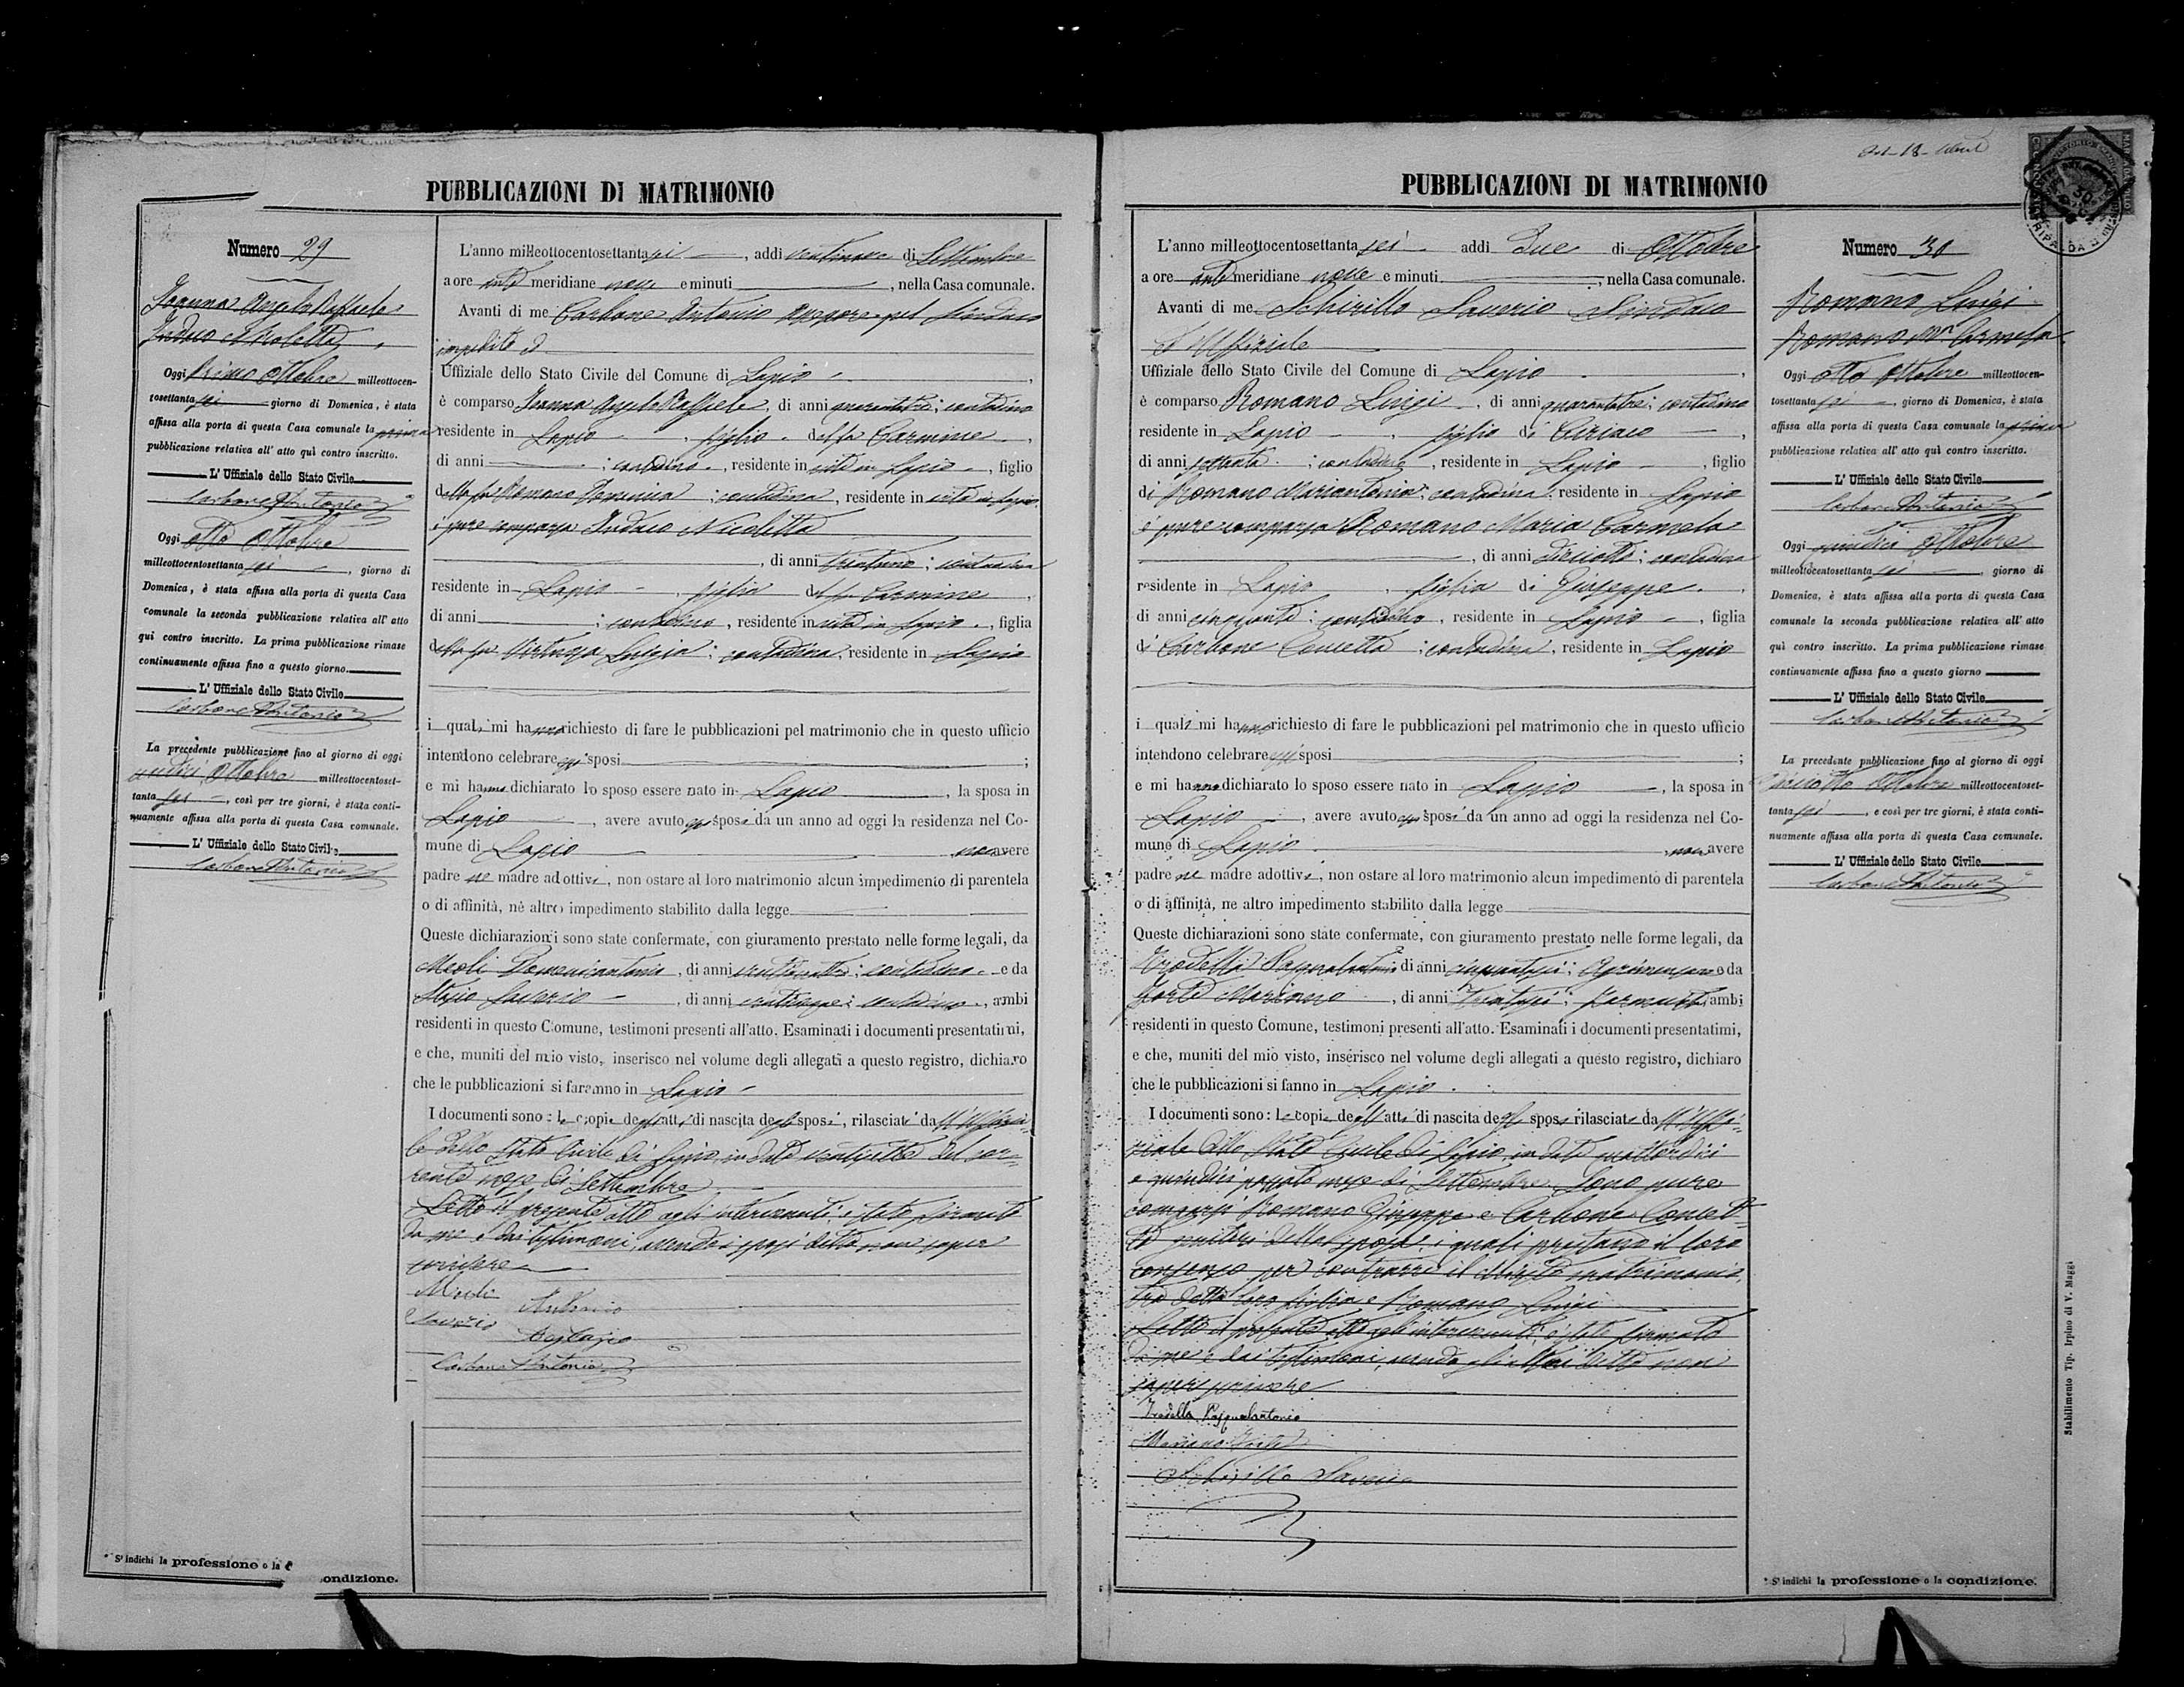 PUBBLICAZIONI DI MATRIMONIO
Numero 29
Joanna Angelo Raffaele
Induco Nicoletta
Oggi Primo Ottobre milleottocen-
tosettantasei giorno di Domenica, è stata
affissa alla porta di questa Casa comunale la prima
pubblicazione relativa all' atto quì contro inscritto.
L' Uffiziale dello Stato Civile
Carbone Antonio
Oggi otto Ottobre
milleottocentosettanta sei, giorno di
Domenica, è stata affissa alla porta di questa Casa
comunale la seconda pubblicazione relativa all' atto
quì contro inscritto. La prima pubblicazione rimase
continuamente affissa fino a questo giorno.
L' Uffiziale dello Stato Civile
Carbone Antonio
La precedente pubblicazione fino al giorno di oggi
undici Ottobre milleottocentoset-
tanta sei, così per tre giorni, è stata conti-
nuamente affissa alla porta di questa Casa comunale.
L' Uffiziale dello Stato Civile
Carbone Antonio
* S' indichi la professione o la condizione.
L'anno milleottocentosettantasei, addì ventinove di Settembre
a ore anti meridiane nove e minuti, nella Casa comunale.
Avanti di me Carbone Antonio Assessore pel Sindaco
impedito
Uffiziale dello Stato Civile del Comune di Lapio,
è comparso Joanna Angelo Raffaele, di anni quarantatre; contadino
residente in Lapio, figlio del fu Carmine,
di anni ; contadino, residente in vita in Lapio, figlio
della fu Romano Domenica; contadina, residente in vita in Lapio
è pure comparsa Induco Nicoletta
, di anni trentuno; contadina
residente in Lapio, figlia del fu Carmine,
di anni ; contadino, residente in vita in Lapio, figlia
della fu Luigia; contadina, residente in Lapio
i quali mi hanno richiesto di fare le pubblicazioni pel matrimonio che in questo ufficio
intendono celebrare essi sposi;
e mi hanno dichiarato lo sposo essere nato in Lapio, la sposa in
Lapio, avere avuto essi sposi da un anno ad oggi la residenza nel Co-
mune di Lapio non avere
padre nè madre adottivi, non ostare al loro matrimonio alcun impedimento di parentela
o di affinità, nè altro impedimento stabilito dalla legge
Queste dichiarazioni sono state confermate, con giuramento prestato nelle forme legali, da
Meoli Domenicantonio, di anni; contadino e da
Saverio, di anni; contadino, ambi
residenti in questo Comune, testimoni presenti all'atto. Esaminati i documenti presentatimi,
e che, muniti del mio visto, inserisco nel volume degli allegati a questo registro, dichiaro
che le pubblicazioni si faranno in Lapio
I documenti sono: le copie degli atti di nascita degli sposi, rilasciati dall'Uffizia-
le dello Stato Civile di Lapio in data ventisette del cor-
rente mese di Settembre
Letto il presente atto agli intervenuti, è stato firmato
da me e dai testimoni, avendo i sposi detto non saper
scrivere
Meoli Antonio
Saverio
Carbone Antonio
PUBBLICAZIONI DI MATRIMONIO
L'anno milleottocentosettanta sei addì due di Ottobre
a ore anti meridiane nove e minuti, nella Casa comunale.
Avanti di me Schirillo Saverio Sindaco
ed Uffiziale
Uffiziale dello Stato Civile del Comune di Lapio,
è comparso Romano Luigi, di anni quarantatre; contadino
residente in Lapio, figlio di Ciriaco,
di anni settanta; contadino, residente in Lapio, figlio
di Romano Mariantonia; contadina, residente in Lapio
è pure comparsa Romano Maria Carmela
, di anni diciotto; contadina
residente in Lapio, figlia di Giuseppe,
di anni cinquanta; contadino, residente in Lapio, figlia
di Carbone Concetta; contadina, residente in Lapio
i quali mi hanno richiesto di fare le pubblicazioni pel matrimonio che in questo ufficio
intendono celebrare essi sposi;
e mi hanno dichiarato lo sposo essere nato in Lapio, la sposa in
Lapio, avere avuto essi sposi da un anno ad oggi la residenza nel Co-
mune di Lapio, non avere
padre nè madre adottivi, non ostare al loro matrimonio alcun impedimento di parentela
o di affinità, ne altro impedimento stabilito dalla legge
Queste dichiarazioni sono state confermate, con giuramento prestato nelle forme legali, da
Trodella Pasqualantonio di anni cinquantasei; Agrimensore e da
Forte Mariano, di anni trentasei; Farmacista, ambi
residenti in questo Comune, testimoni presenti all'atto. Esaminati i documenti presentatimi,
e che, muniti del mio visto, inserisco nel volume degli allegati a questo registro, dichiaro
che le pubblicazioni si fanno in Lapio.
I documenti sono: le copie degli atti di nascita degli sposi rilasciate dall'Uffi-
ziale dello Stato Civile di Lapio in data quattordici
e quindici passato mese di Settembre. Sono pure
comparsi Romano Giuseppe e Carbone Concet-
ta genitori della sposa, i quali prestano il loro
consenso per contrarre il chiesto matrimonio
tra detta loro figlia e Romano Luigi
Letto il presente atto agli intervenuti, è stato firmato
da me e dai testimoni, avendo gli altri detto non
sapere scrivere
Trodella Pasqualantonio
Mariano Forte
Schirillo Saverio
Numero 30
Romano Luigi
Romano Mª Carmela
Oggi otto Ottobre milleottocen-
tosettanta sei, giorno di Domenica, è stata
affissa alla porta di questa Casa comunale la prima
pubblicazione relativa all' atto quì contro inscritto.
L' Uffiziale dello Stato Civile
Carbone Antonio
Oggi quindici Ottobre
milleottocentosettanta sei, giorno di
Domenica, è stata affissa alla porta di questa Casa
comunale la seconda pubblicazione relativa all' atto
quì contro inscritto. La prima pubblicazione rimase
continuamente affissa fino a questo giorno
L' Uffiziale dello Stato Civile
Carbone Antonio
La precedente pubblicazione fino al giorno di oggi
diciotto Ottobre milleottocentoset-
tanta sei, e così per tre giorni, è stata conti-
nuamente affissa alla porta di questa Casa comunale.
L' Uffiziale dello Stato Civile
Carbone Antonio
* S' indichi la professione o la condizione.
Stabilimento Tip. Irpino di V. Maggi